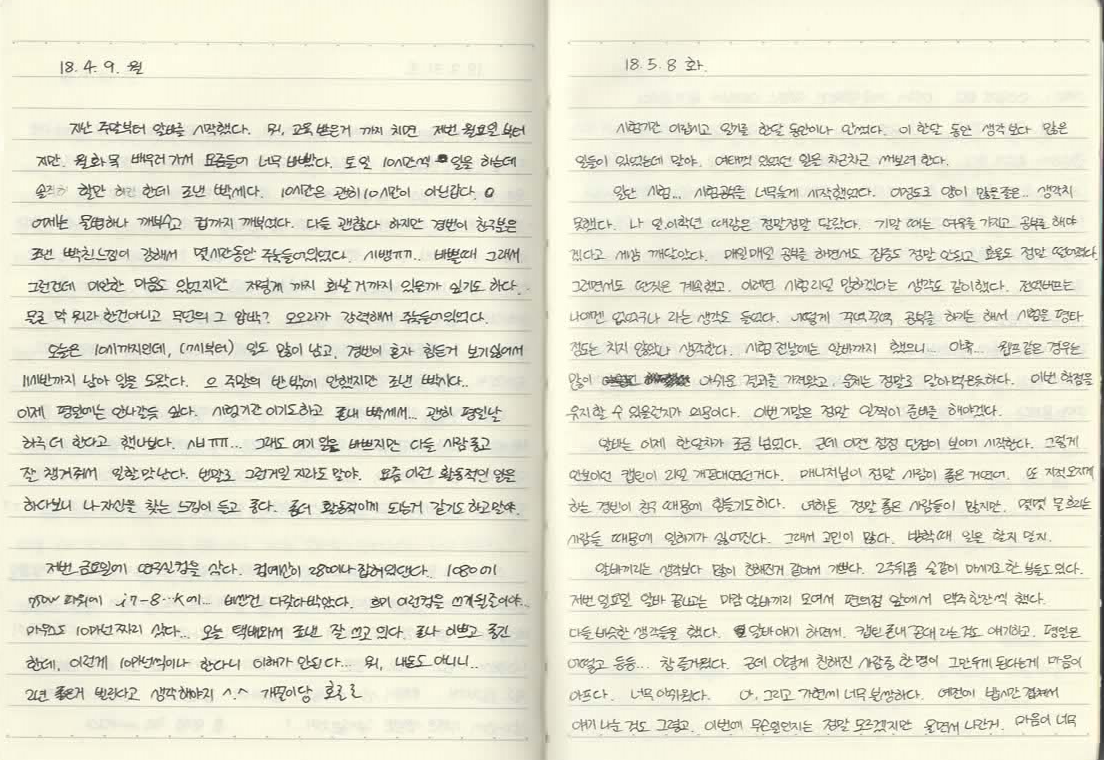 18. 4. 9. 월
지난 주말부터 알바를 시작했다. 뭐, 교육 받은거 까지 치면 저번 월요일 부터
지만. 월화목 배우러 가서 요즘들어 너무 바빴다. 토일 10시간씩 일을 하는데
솔직히 할만 하긴 한데 조낸 빡세다. 10시간은 괜히 10시간이 아닌갑다.
어제는 물병하나 깨부수고 컵까지 깨부셨다. 다들 괜찮다 하지만 경빈이 친구분은
조낸 빡친느낌이 강해서 몇시간동안 주눅들어있었다. 시뱅ㅠㅠ.. 바쁠때 그래서
그런건데 미안한 마음도 있었지만 저렇게 까지 화날거까지 있을까 싶기도 하다.
물론 막 뭐라 한건아니고 무언의 그 압박? 오오라가 강력해서 주눅들어있었다.
오늘은 10시까지인데, (7시부터) 일도 많이 남고, 경빈이 혼자 힘든거 보기싫어서
11시반까지 남아 일을 도왔다. 으 주말의 반밖에 안했지만 조낸 빡시다..
이제 평일에는 안나갈듯 싶다. 시험기간 이기도하고 조내 빡세서... 괜히 평일날
하루 더 한다고 했나보다. ㅅㅂㅠㅠ... 그래도 여기 일은 바쁘지만 다들 사람좋고
잘 챙겨줘서 일할맛난다. 빈말로 그런거일 지라도 말야. 요즘 이런 활동적인 일을
하다보니 나 자신을 찾는 느낌이 들고 좋다. 좀더 활동적이게 되는거 같기도 하고 말야.
저번 금요일에 드디어 컴을 샀다. 컴예산이 280이나 잡혀있댄다. 1080에
750W 파워에 i7-8...K에... 비싼건 다갖다박았다. 흐미 이런컴을 쓰게될줄이야..
마우스도 10만넌짜리 샀다... 오늘 택배와서 조낸 잘 쓰고 있다. 조나 이쁘고 좋긴
한데, 이런게 10만넌씩이나 한다니 이해가 안된다... 뭐, 내돈도 아니니..
그냥 좋은거 받았다고 생각해야지 ^.^ 개꿀이당 호로로
18. 5. 8 화.
시험기간 이랍시고 일기를 한달 동안이나 안썼다. 이 한달 동안 생각보다 많은
일들이 있었는데 말야. 여태껏 있었던 일은 차근차근 써보려 한다.
일단 시험... 시험공부를 너무늦게 시작했었다. 이정도로 양이 많을줄은.. 생각치
못했다. 나 일이학년 때랑은 정말정말 달랐다. 기말 때는 여유를 가지고 공부를 해야
겠다고 세삼 깨달았다. 매일매일 공부를 하면서도 집중도 정말 안되고 효율도 정말 떨어졌다.
그러면서도 딴짓은 계속했고. 이러면 시험 리얼 망하겠다는 생각도 같이했다. 전역버프는
나에겐 없었구나 라는 생각도 들었다. 어떻게 꾸역꾸역 공부를 하기는 해서 시험을 평타
정도는 치지 않았나 생각한다. 시험 전날에는 알바까지 했으니... 아휴... 웹프같은 경우는
많이 아쉬운 결과를 가져왔고, 운체는 정말로 말아먹은듯하다. 이번 학점을
유지할 수 있을런지가 의문이다. 이번 기말은 정말 일찍이 준비를 해야겠다.
알바는 이제 한달차가 조금 넘었다. 근데 이젠 점점 단점이 보이기 시작한다. 그렇게
안보이던 캡틴이 리얼 개꼰대였던거다. 매니저님이 정말 사람이 좋은 거였어. 또 지적오지게
하는 경빈이 친구 때문에 힘들기도하다. 여하튼 정말 좋은 사람들이 많지만, 몇몇 물 흐리는
사람들 때문에 일하기가 싫어진다. 그래서 고민이 많다. 방학때 일은 할지 말지.
알바끼리는 생각보다 많이 친해진거 같아서 기쁘다. 2주뒤쯤 술같이 마시기로한 부들도 있다.
저번 일요일 알바 끝나고는 마감 알바끼리 모여서 편의점 앞에서 맥주한잔씩 했다.
다들 비슷한 생각들을 했다. 알바얘기 하면서. 캡틴 존내 꼰대 라는것도 얘기하고. 평일은
어떻고 등등... 참 즐거웠다. 근데 이렇게 친해진 사람중 한 명이 그만두게 된다는게 마음이
아프다. 너무 아쉬웠다. 아, 그리고 가현씨 너무 불쌍하다. 예전에 밥시간 겹쳐서
얘기 나눈 것도 그렇고. 이번에 무슨일인지는 정말 모르겠지만 울면서 나간거. 마음이 너무